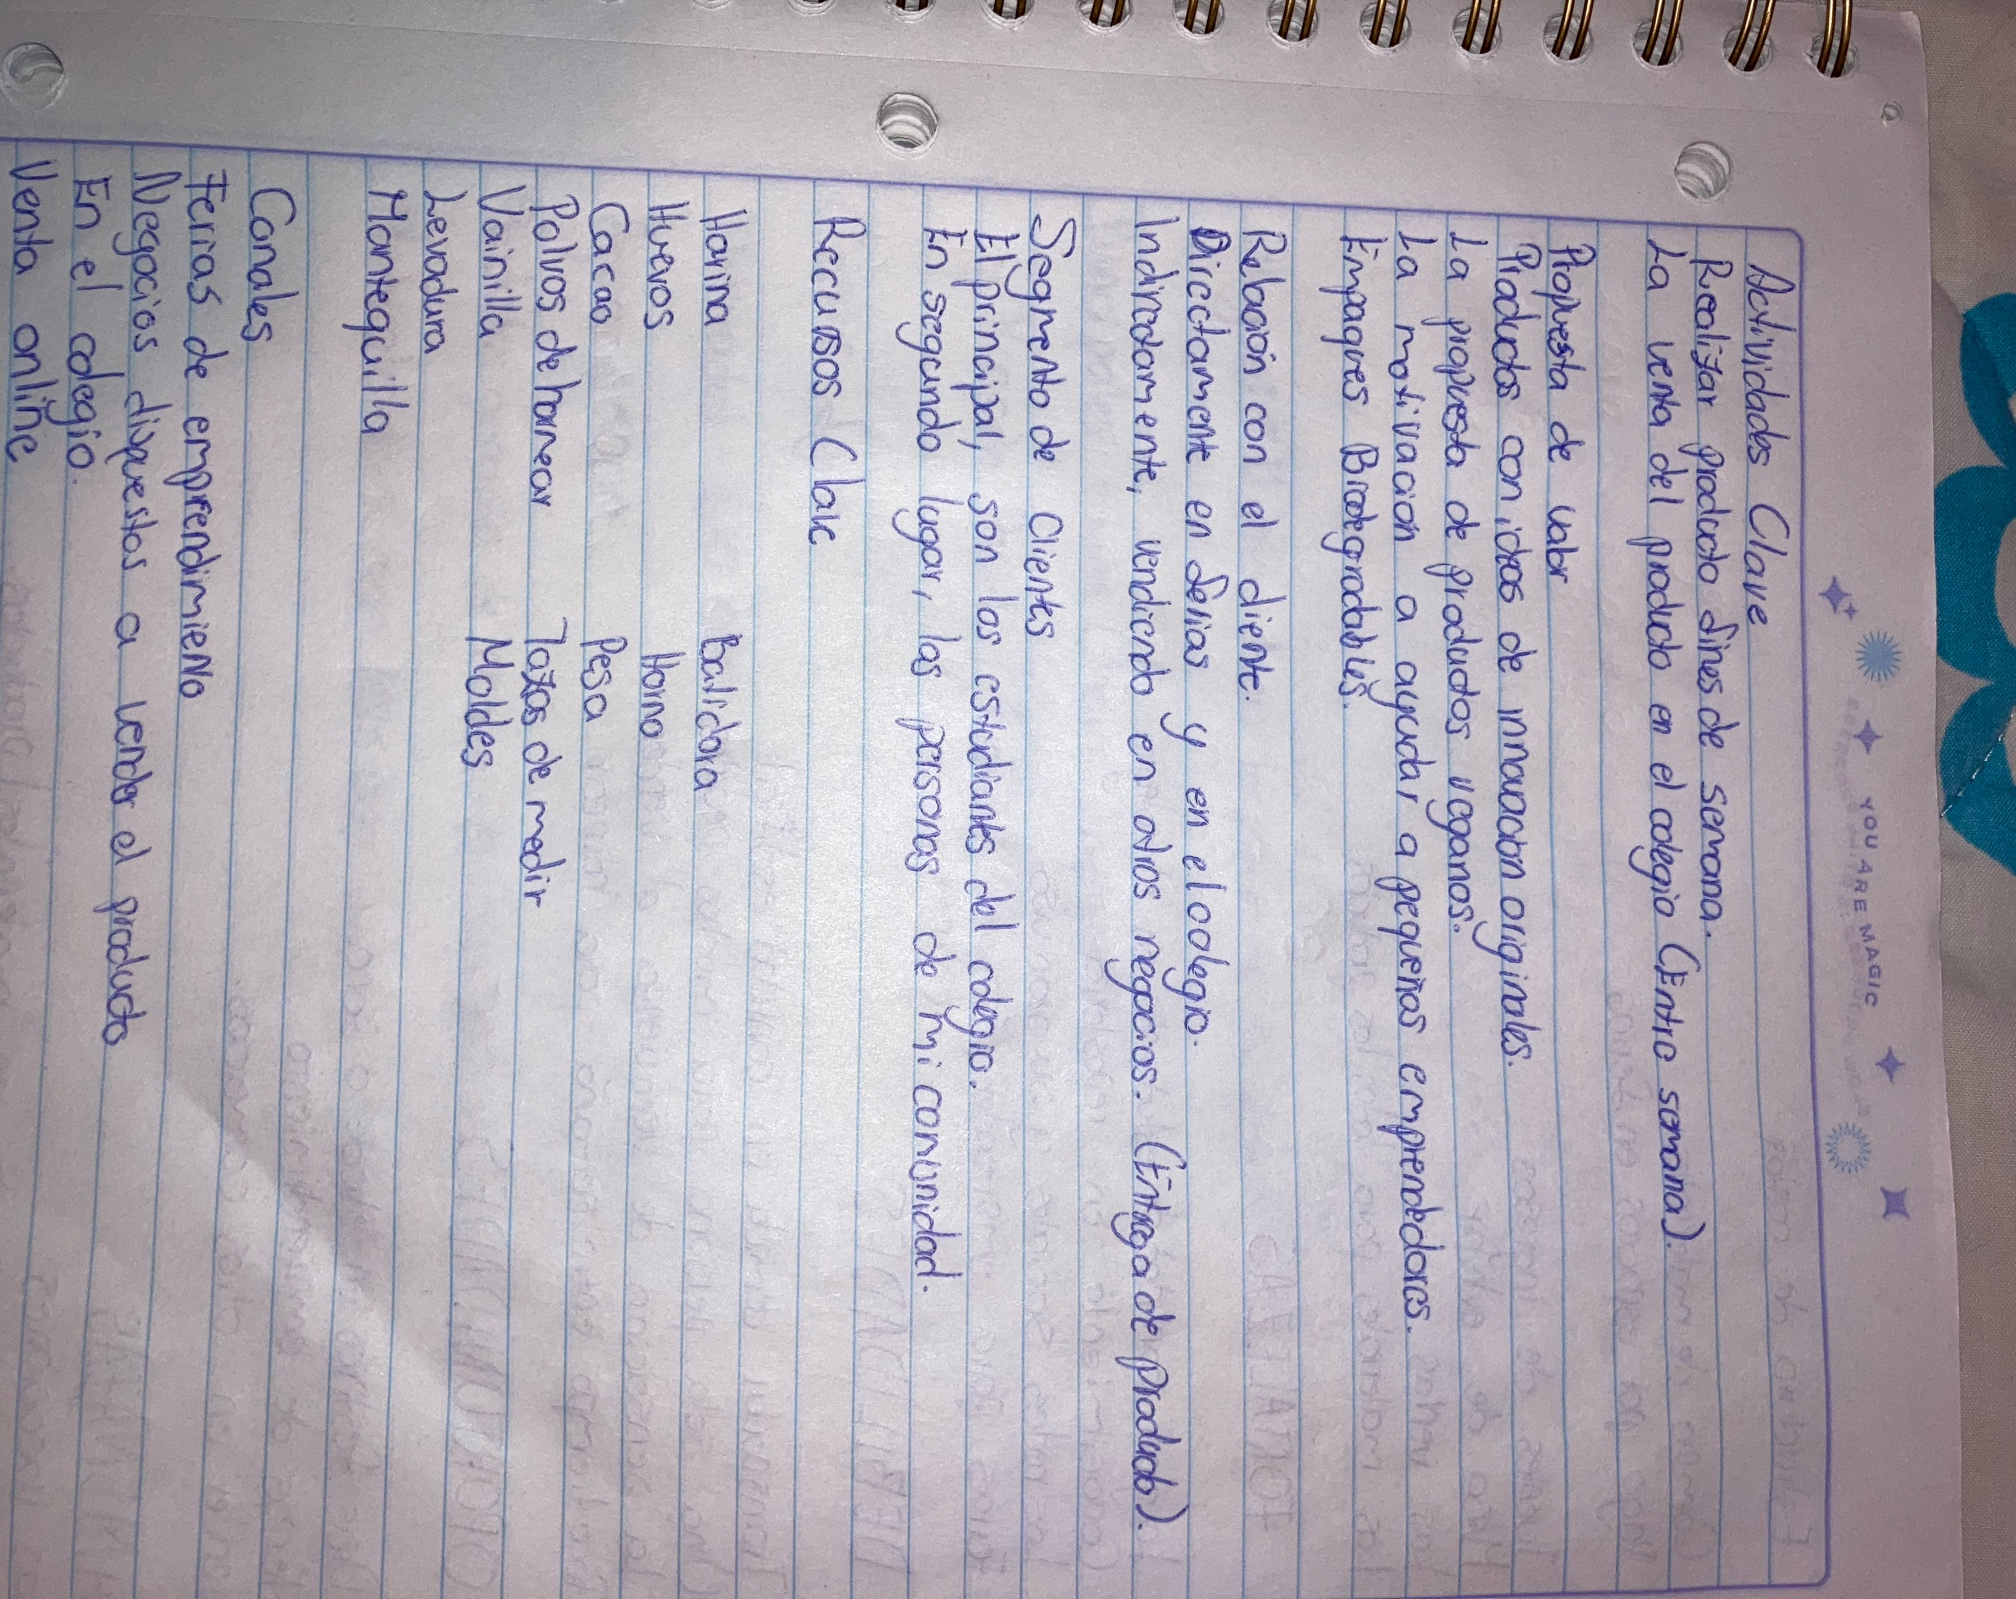 YOU ARE MAGIC
Actividades Clave
Realizar producto fines de semana.
La venta del producto en el colegio (Entre semana).
Propuesta de valor
Productos con ideas de innovación originales.
La propuesta de productos veganos.
La motivación a ayudar a pequeños emprendedores.
Empaques Biodegradables.
Relación con el cliente.
Directamente en ferias y en el colegio.
Indirectamente, vendiendo en otros negocios. (Entrega de producto).
Segmento de Clientes
El principal, son los estudiantes del colegio.
En segundo lugar, las personas de mi comunidad.
Recursos Clave
Harina Batidora
Huevos Horno
Cacao Pesa
Polvos de hornear Tazas de medir
Vainilla Moldes
Levadura
Mantequilla
Canales
Ferias de emprendimieNo
Negocios dispuestos a vender el producto
En el colegio.
Venta online